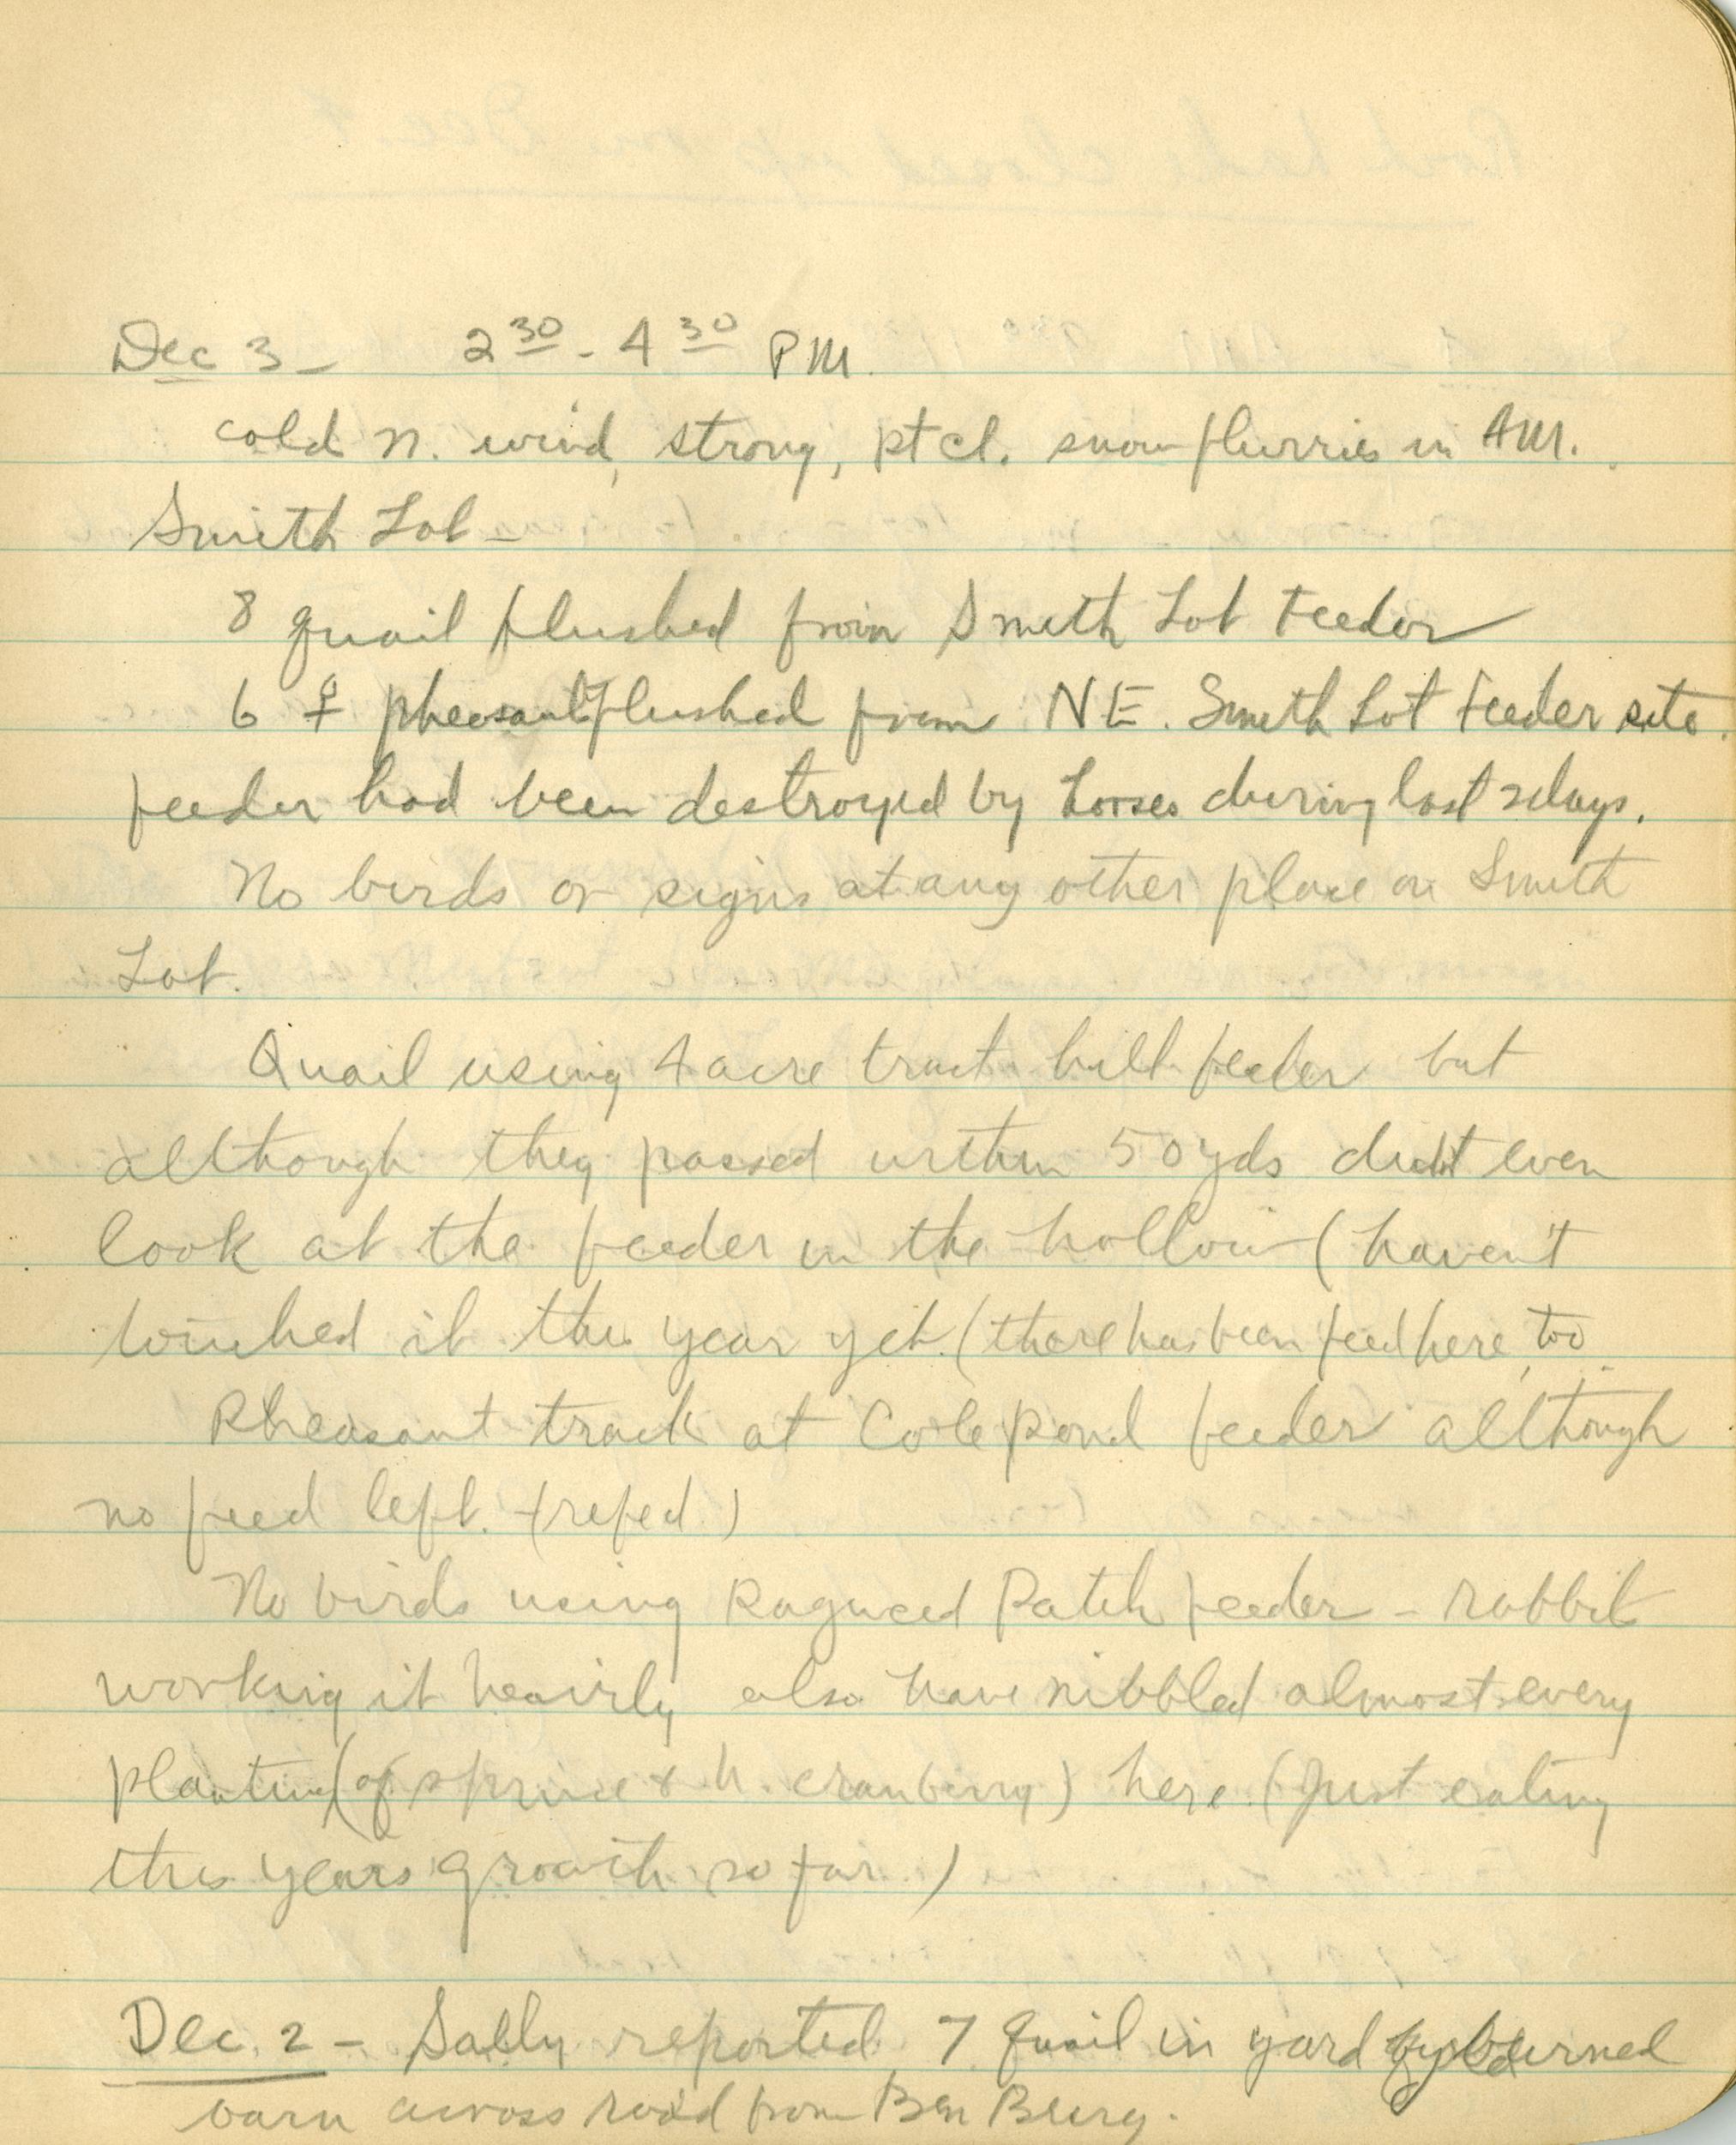 Dec 3 - 2 30 - 4 30 PM.
cold N. wind, strong, pt cl. snow flurries in AM.
Smith Lot -
8 quail flushed from Smith Lot Feeder
6 ♀ pheasant flushed from NE. Smith Lot feeder site.
feeder had been destroyed by horses during last 2 days.
No birds or signs at any other place on Smith
Lot.
Quail using 4 acre tract hill feeder but
although they passed within 50 yds didnt even
look at the feeder in the hollow (haven't
touched it this year yet. (there has been feed here, too.
Pheasant track at Cole pond feeder although
no feed left. (refed.)
No birds using Ragweed Patch feeder - rabbit
working it heavily also have nibbled almost every
planting (of spruce & h. cranberry) here. (Just eating
this years growth so far.)
Dec. 2 - Sally reported 7 quail in yard by burned
barn across road from Ben Berg.